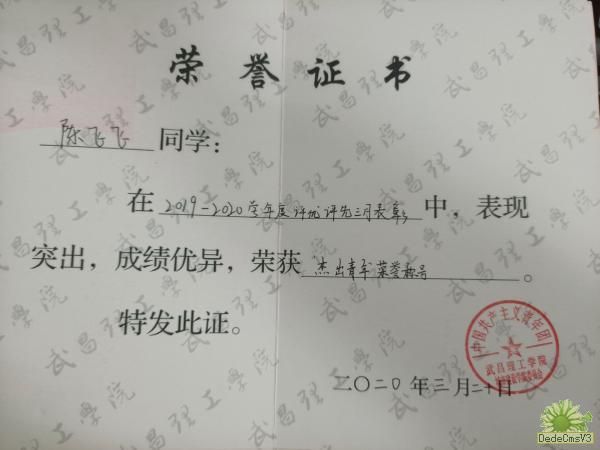 荣誉证书
陈飞飞 同学:
在 2019-2020学年度评优评先三月表彰 中,表现
突出,成绩优异,荣获 杰出青年荣誉称号 。
特发此证。
中国共产主义青年团
武昌理工学院
二〇二〇年三月二十日
武昌理工学院
DedeCmsV3